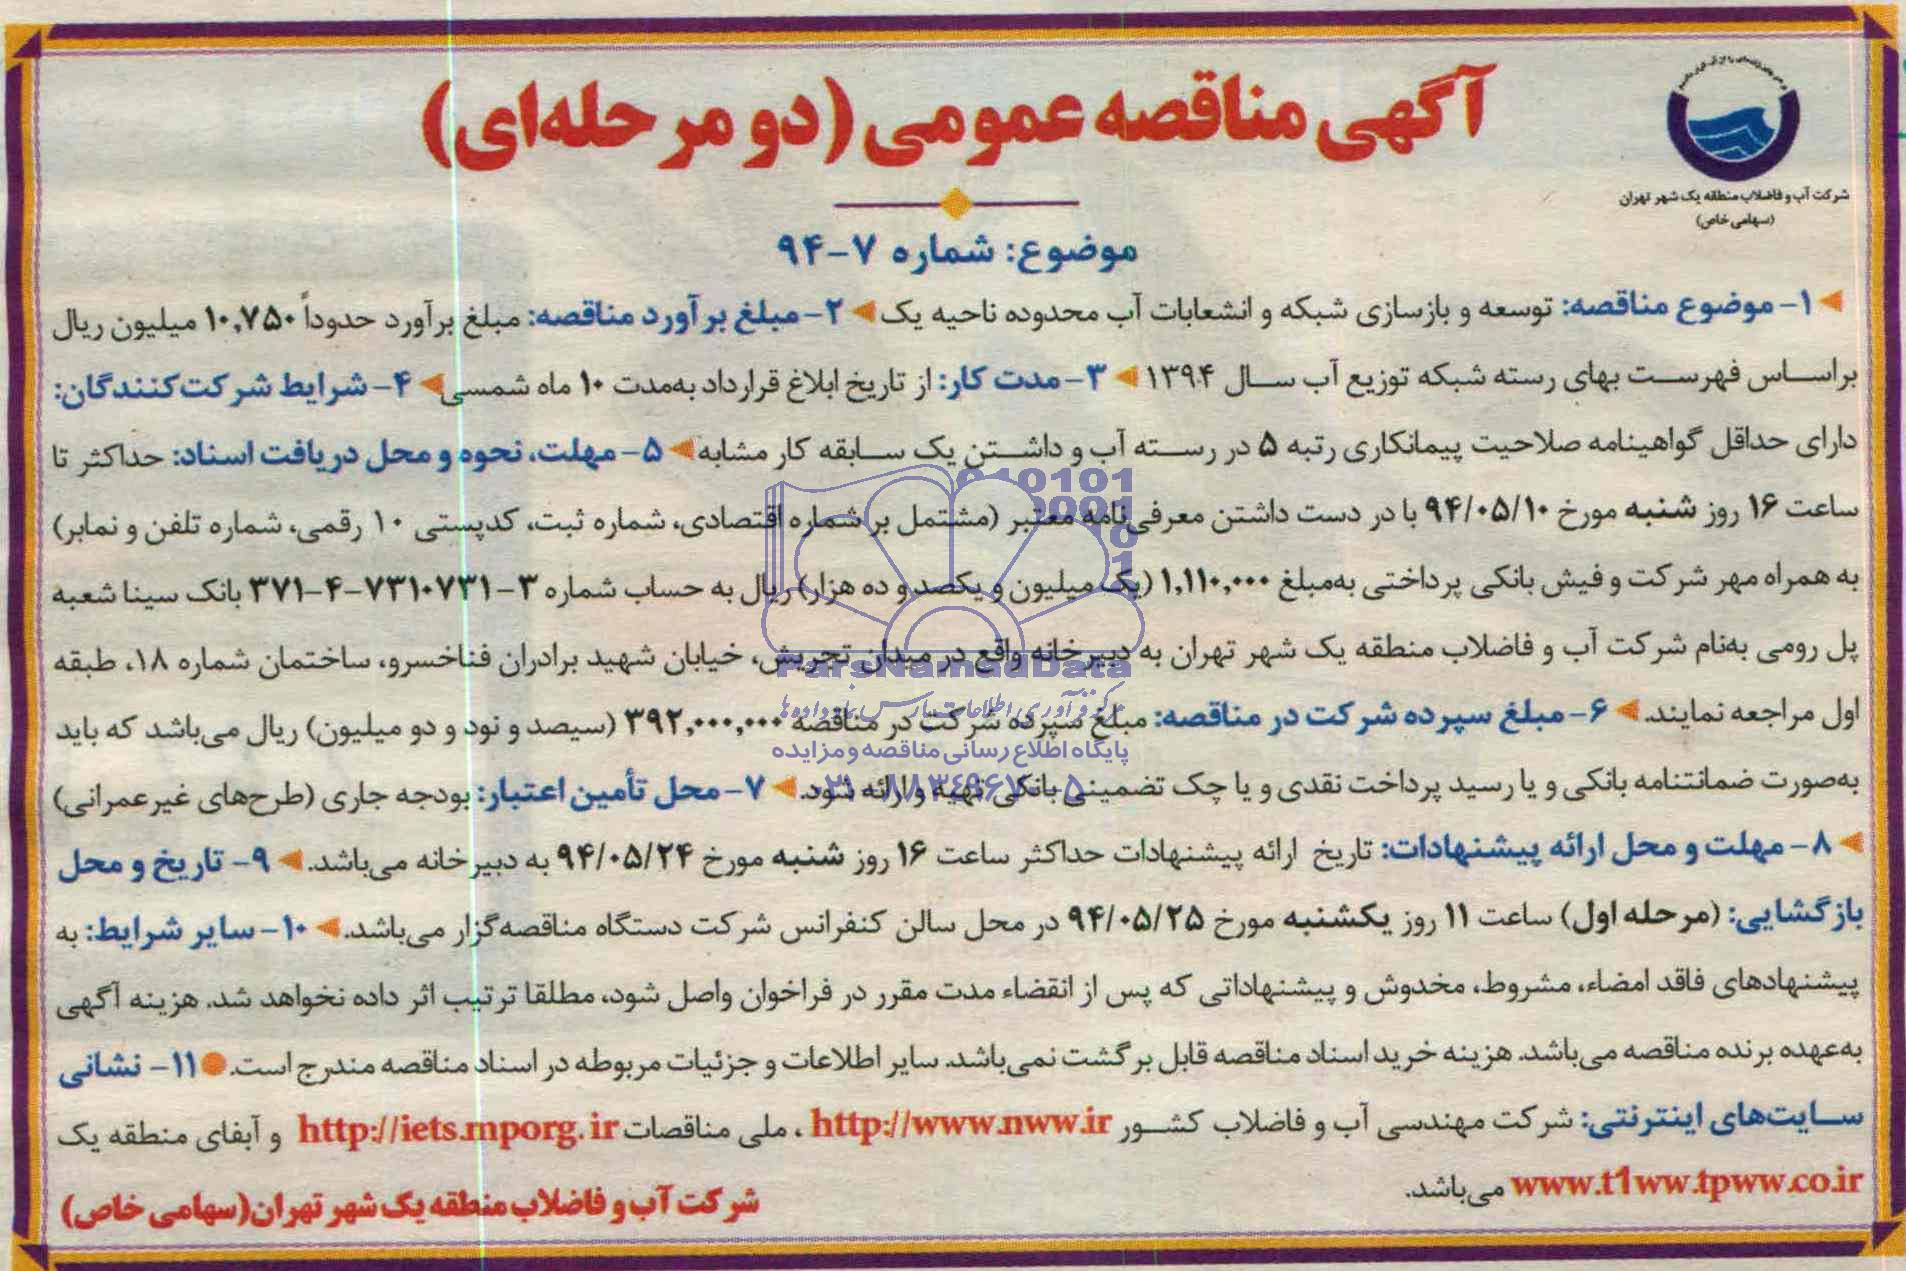 آگهی مناقصه عمومی (دو مرحله‌ای)
شرکت آب و فاضلاب منطقه یک شهر تهران
(سهامی خاص)
موضوع: شماره ۷-۹۴
۱- موضوع مناقصه: توسعه و بازسازی شبکه و انشعابات آب محدوده ناحیه یک ۲- مبلغ برآورد مناقصه: مبلغ برآورد حدوداً ۱۰,۷۵۰ میلیون ریال
براساس فهرست بهای رسته شبکه توزیع آب سال ۱۳۹۴ ۳- مدت کار: از تاریخ ابلاغ قرارداد به‌مدت ۱۰ ماه شمسی ۴- شرایط شرکت‌کنندگان:
دارای حداقل گواهینامه صلاحیت پیمانکاری رتبه ۵ در رسته آب و داشتن یک سابقه کار مشابه ۵- مهلت، نحوه و محل دریافت اسناد: حداکثر تا
ساعت ۱۶ روز شنبه مورخ ۹۴/۰۵/۱۰ با در دست داشتن معرفی‌نامه معتبر (مشتمل بر شماره اقتصادی، شماره ثبت، کدپستی ۱۰ رقمی، شماره تلفن و نمابر)
به همراه مهر شرکت و فیش بانکی پرداختی به‌مبلغ ۱,۱۱۰,۰۰۰ (یک میلیون و یکصد و ده هزار) ریال به حساب شماره ۳-۷۳۱۰۷۳۱-۴-۳۷۱ بانک سینا شعبه
پل رومی به‌نام شرکت آب و فاضلاب منطقه یک شهر تهران به دبیرخانه واقع در میدان تجریش، خیابان شهید برادران فناخسرو، ساختمان شماره ۱۸، طبقه
اول مراجعه نمایند. ۶- مبلغ سپرده شرکت در مناقصه: مبلغ سپرده شرکت در مناقصه ۳۹۲,۰۰۰,۰۰۰ (سیصد و نود و دو میلیون) ریال می‌باشد که باید
به‌صورت ضمانتنامه بانکی و یا رسید پرداخت نقدی و یا چک تضمینی بانکی تهیه و ارائه شود. ۷- محل تأمین اعتبار: بودجه جاری (طرح‌های غیرعمرانی)
۸- مهلت و محل ارائه پیشنهادات: تاریخ ارائه پیشنهادات حداکثر ساعت ۱۶ روز شنبه مورخ ۹۴/۰۵/۲۴ به دبیرخانه می‌باشد. ۹- تاریخ و محل
بازگشایی: (مرحله اول) ساعت ۱۱ روز یکشنبه مورخ ۹۴/۰۵/۲۵ در محل سالن کنفرانس شرکت دستگاه مناقصه‌گزار می‌باشد. ۱۰- سایر شرایط: به
پیشنهادهای فاقد امضاء، مشروط، مخدوش و پیشنهاداتی که پس از انقضاء مدت مقرر در فراخوان واصل شود، مطلقا ترتیب اثر داده نخواهد شد. هزینه آگهی
به‌عهده برنده مناقصه می‌باشد. هزینه خرید اسناد مناقصه قابل برگشت نمی‌باشد. سایر اطلاعات و جزئیات مربوطه در اسناد مناقصه مندرج است. ۱۱- نشانی
سایت‌های اینترنتی: شرکت مهندسی آب و فاضلاب کشور http://www.nww.ir ، ملی مناقصات http://iets.mporg.ir و آبفای منطقه یک
www.t1ww.tpww.co.ir می‌باشد.
شرکت آب و فاضلاب منطقه یک شهر تهران (سهامی خاص)
ParsNamadData
پایگاه اطلاع رسانی مناقصه و مزایده
۰۲۱-۸۸۳۴۹۶۷۰-۵